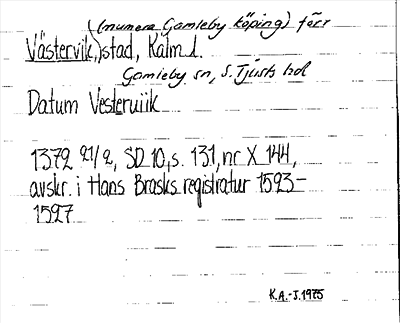 (numera Gamleby köping) förr
Västervik, stad, Kalm.l.
Gamleby sn, S. Tjusts hd
Datum Vesteruiik
1372 21/2, SD 10, s. 131, nr X 144,
avskr. i Hans Brasks registratur 1523–
1527
K.A.-J. 1975